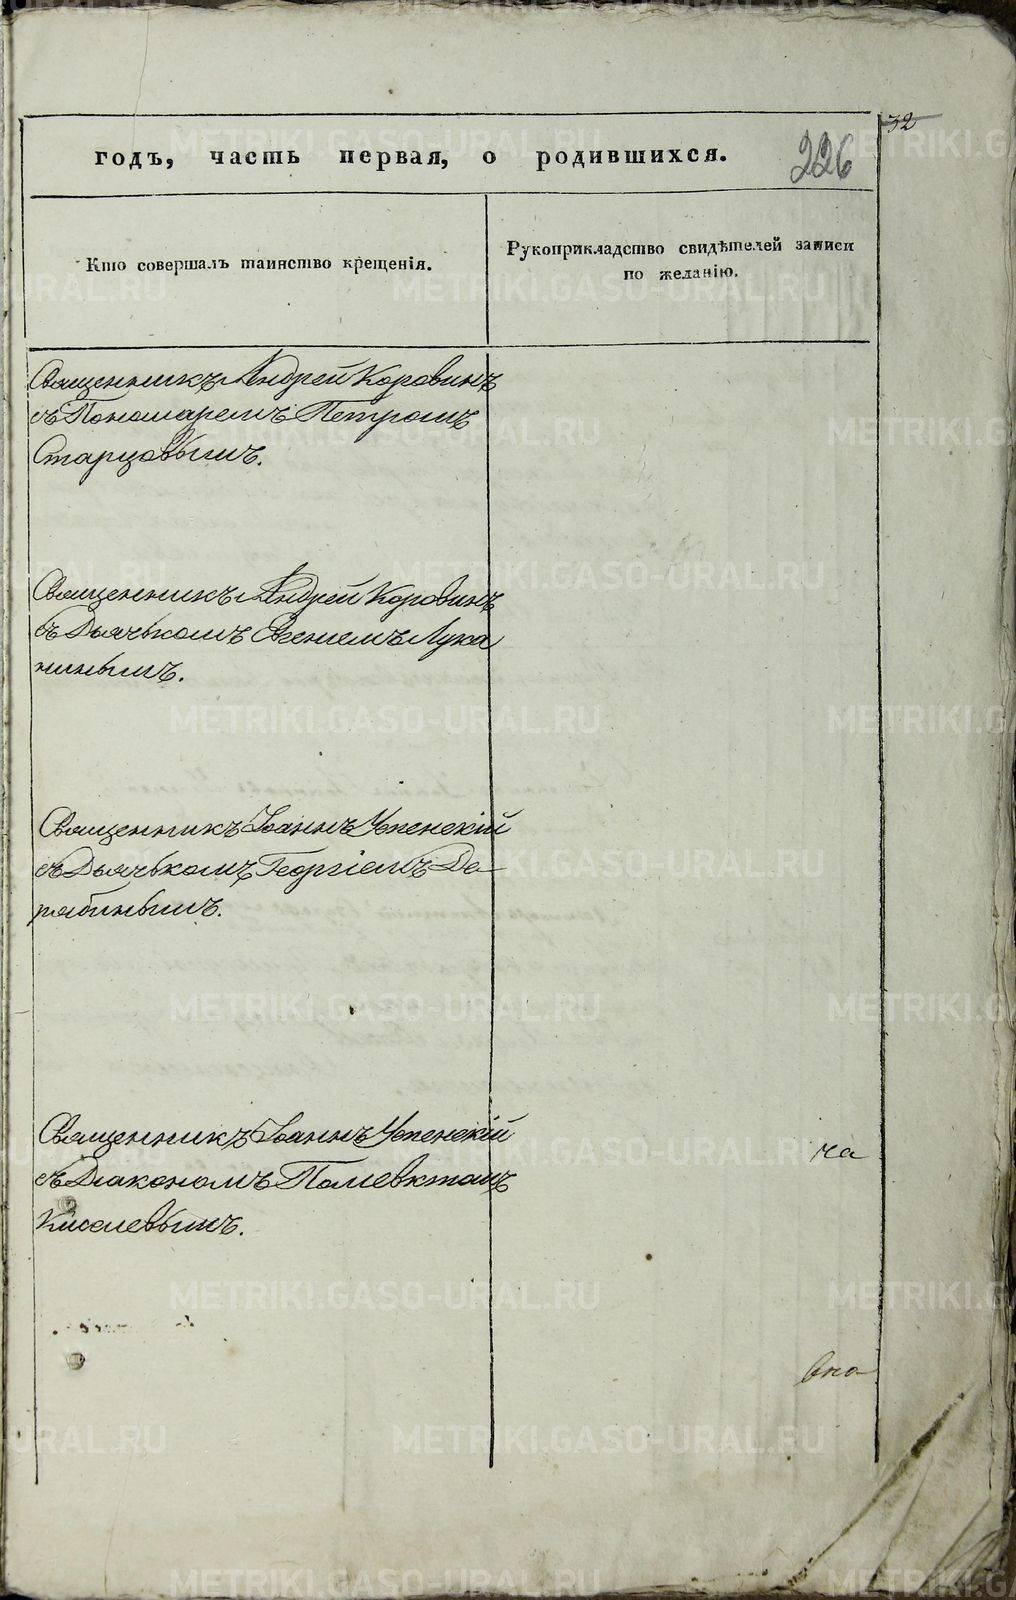 32
годъ, часть первая, о родившихся.
226
Кто совершалъ таинство крещенія.
Рукоприкладство свидѣтелей записи
по желанію.
Священникъ Андрей Коровинъ
съ Пономаремъ Петромъ
Старцовымъ.
Священникъ Андрей Коровинъ
съ Дьячькомъ Евгеніемъ Лука
нинымъ.
Священникъ Іоаннъ Успенскій
съ Дьячькомъ Георгіемъ Де-
рябинымъ.
Священникъ Іоаннъ Успенскій
съ Діакономъ Полиевктомъ
Киселевымъ.
ча
METRIKI.GASO-URAL.RU